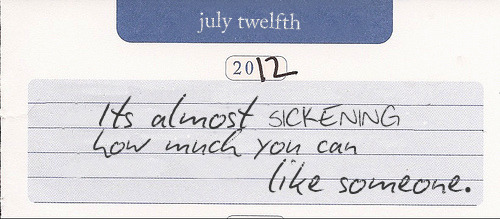 july twelfth
2012
Its almost SICKENING
how much you can
like someone.